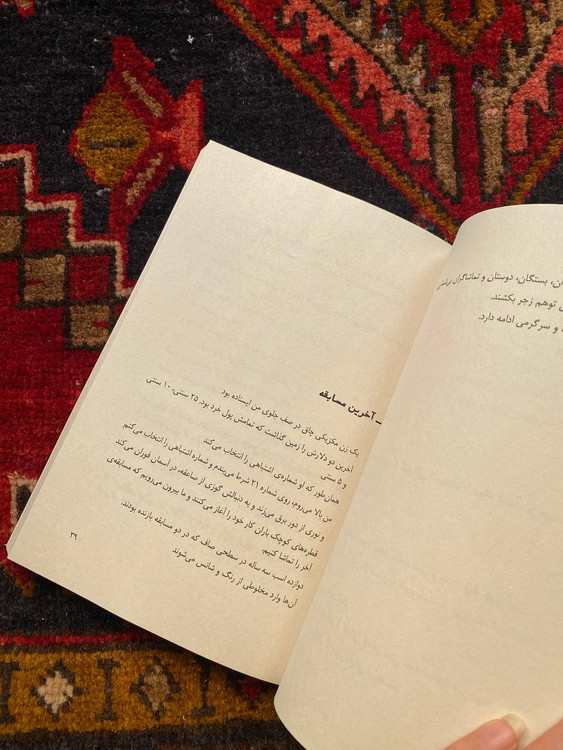 ن، بستگان، دوستان و تماشاگران
توهم زجر بکشند.
و سرگرمی ادامه دارد.
ـ آخرین مسابقه
یک زن مکزیکی چاق در صف جلوی من ایستاده بود
آخرین دو دلارش را زمین گذاشت که تمامش پول خرد بود. ۲۵ سنتی، ۱۰ سنتی
و ۵ سنتی
همان‌طور که او شماره‌ی اشتباهی را انتخاب می‌کند
من بالا می‌روم، روی شماره ۲۱ شرط می‌بندم و شماره اشتباهی را انتخاب می‌کنم
و نوری از دور برق می‌زند و به دنبالش گوزی از صاعقه، در آسمان فوران می‌کند
قطره‌های کوچک باران کار خود را آغاز می‌کنند و ما بیرون می‌رویم که مسابقه‌ی
آخر را تماشا کنیم.
دوازده اسب سه ساله در سطحی صاف که در دو مسابقه بازنده بودند
آن‌ها وارد مخلوطی از رنگ و شانس می‌شوند
۳۹